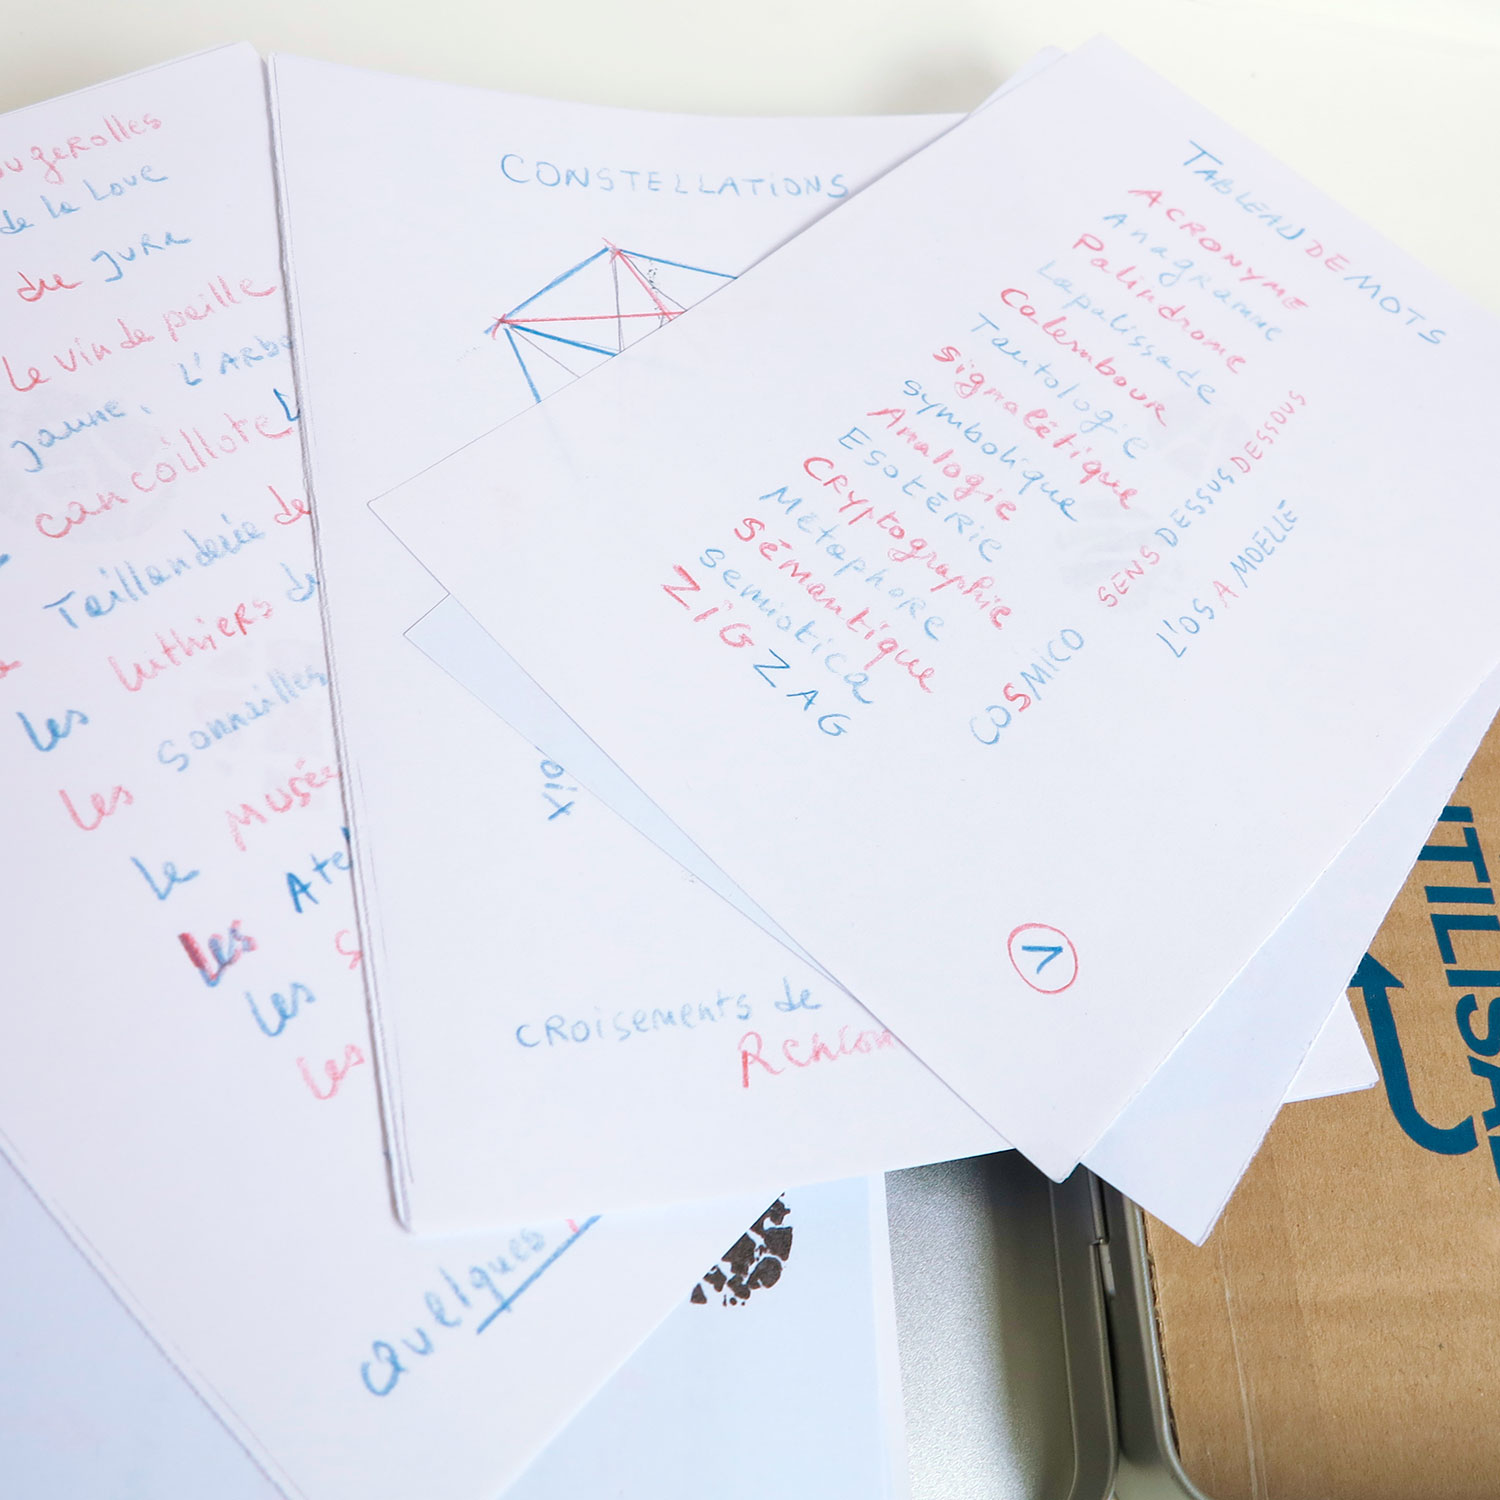 ougeRolles
de la Loue
du JURA
Le vin de paille
jaune, L'ARbo
cancoillote L
Taillanderie de
les luthiers de
les sonnailles
les Musée
le Atel
les S
les
les
quelques
CONSTELLATIONS
oir
CROisements de
Rencon
TABLEAU DE MOTS
ACRONYME
Anagramme
Palindrome
Lapalissade
Calembour
Tautologie
signalétique
symbolique
Analogie
EsotéRie
CRyptographie
MétaphoRe
sémantique
semiotica
ZiGZAG
COSMICO
SENS DESSUS DESSOUS
L'OS A MOELLE
1
UTILISAB